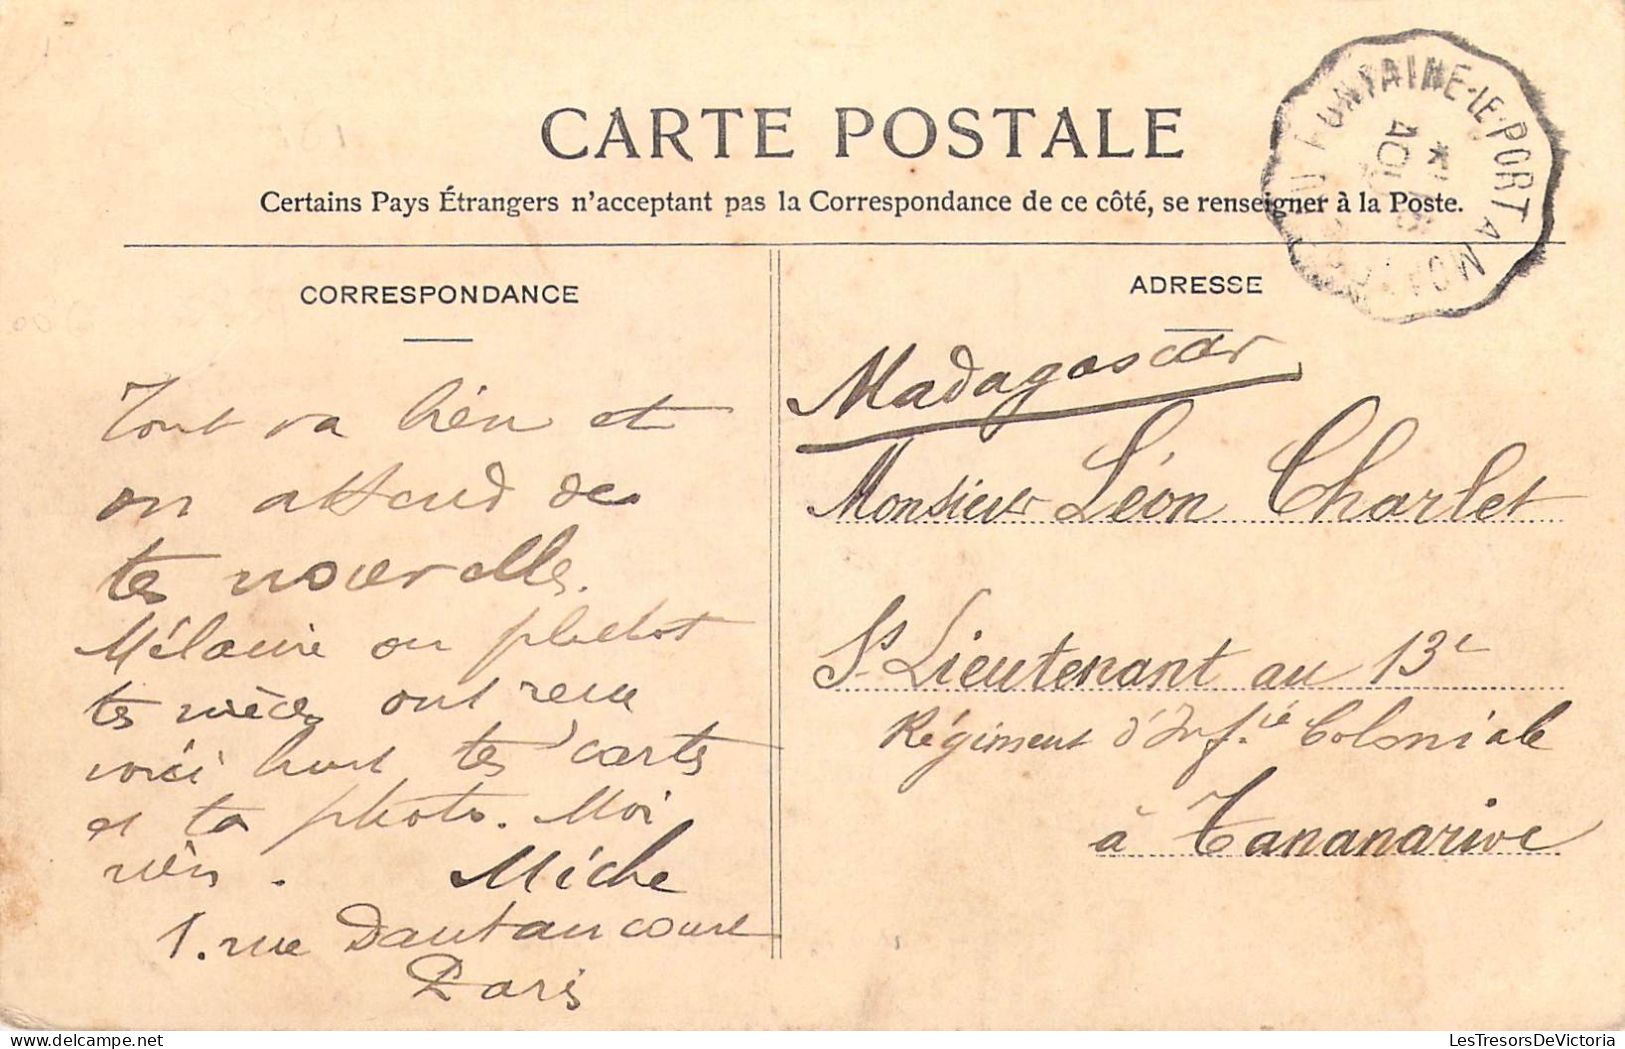 CARTE POSTALE
Certains Pays Étrangers n'acceptant pas la Correspondance de ce côté, se renseigner à la Poste.
FONTAINE-LE-PORT A
AOU
CORRESPONDANCE
Tout va bien et
on attend de
tes nouvelles.
Mélanie ou plutot
tes nièces ont reçu
voici huit tes cartes
et ta photo. Moi
rien. Miche
1. rue Dautancourt
Paris
ADRESSE
Madagascar
Monsieur Léon Charlet
Ss Lieutenant au 13e
Régiment d'Inf.ie Coloniale
à Tananarive
LesTresorsDeVictoria